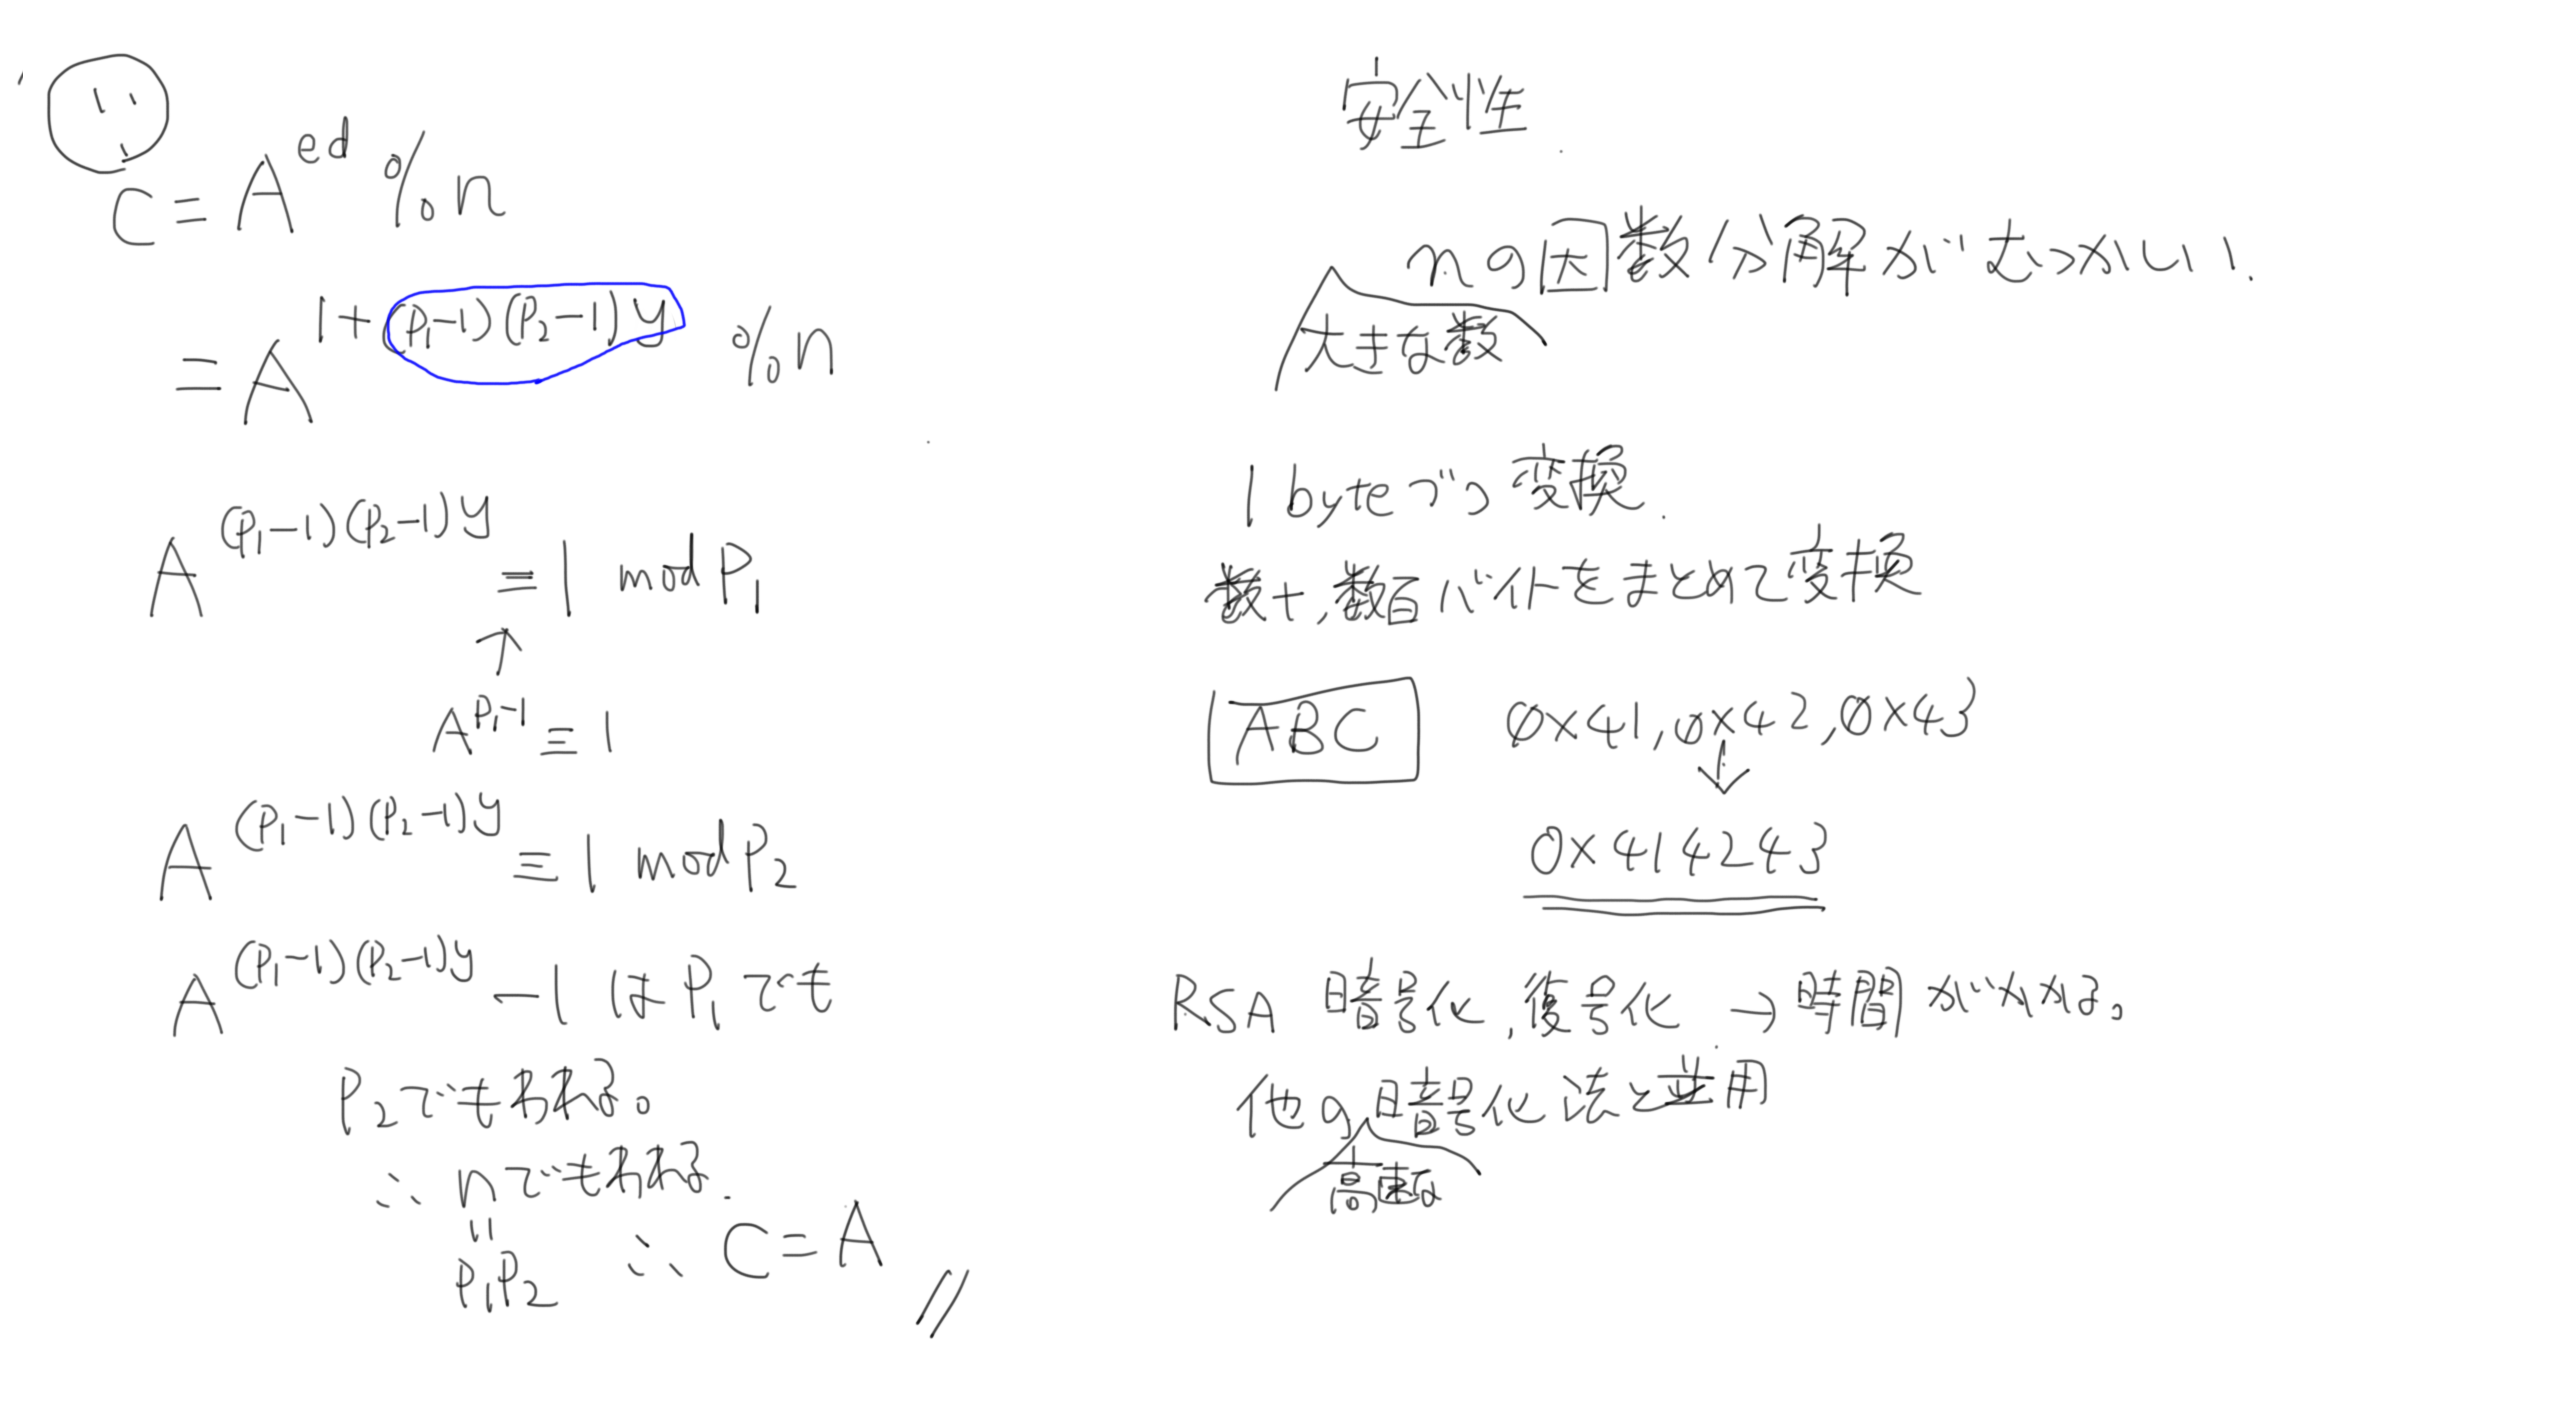 C = A^ed % n
= A^1+(P₁-1)(P₂-1)y % n
A^(P₁-1)(P₂-1)y ≡ 1 mod P₁
↑
A^P₁-1 ≡ 1
A^(P₁-1)(P₂-1)y ≡ 1 mod P₂
A^(P₁-1)(P₂-1)y - 1 は P₁でも
P₂でもわれる。
∴ nでもわれる.
=
P₁P₂ ∴ C = A //
安全性.
nの因数分解がむつかしい.
大きな数
1 byteづつ変換.
数十,数百バイトをまとめて変換
ABC 0x41,0x42,0x43
↓
0x414243
RSA 暗号化,復号化 → 時間がかかる。
他の暗号化法と並用
高速な